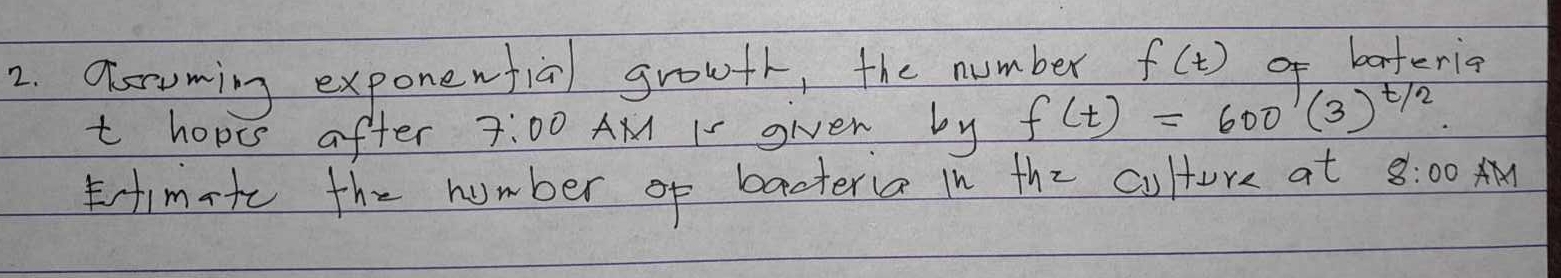 2. Assuming exponential growth, the number f(t) of bateria
t hours after 7:00 AM is given by f(t) = 600 (3)^t/2.
Estimate the number of bacteria in the culture at 8:00 AM